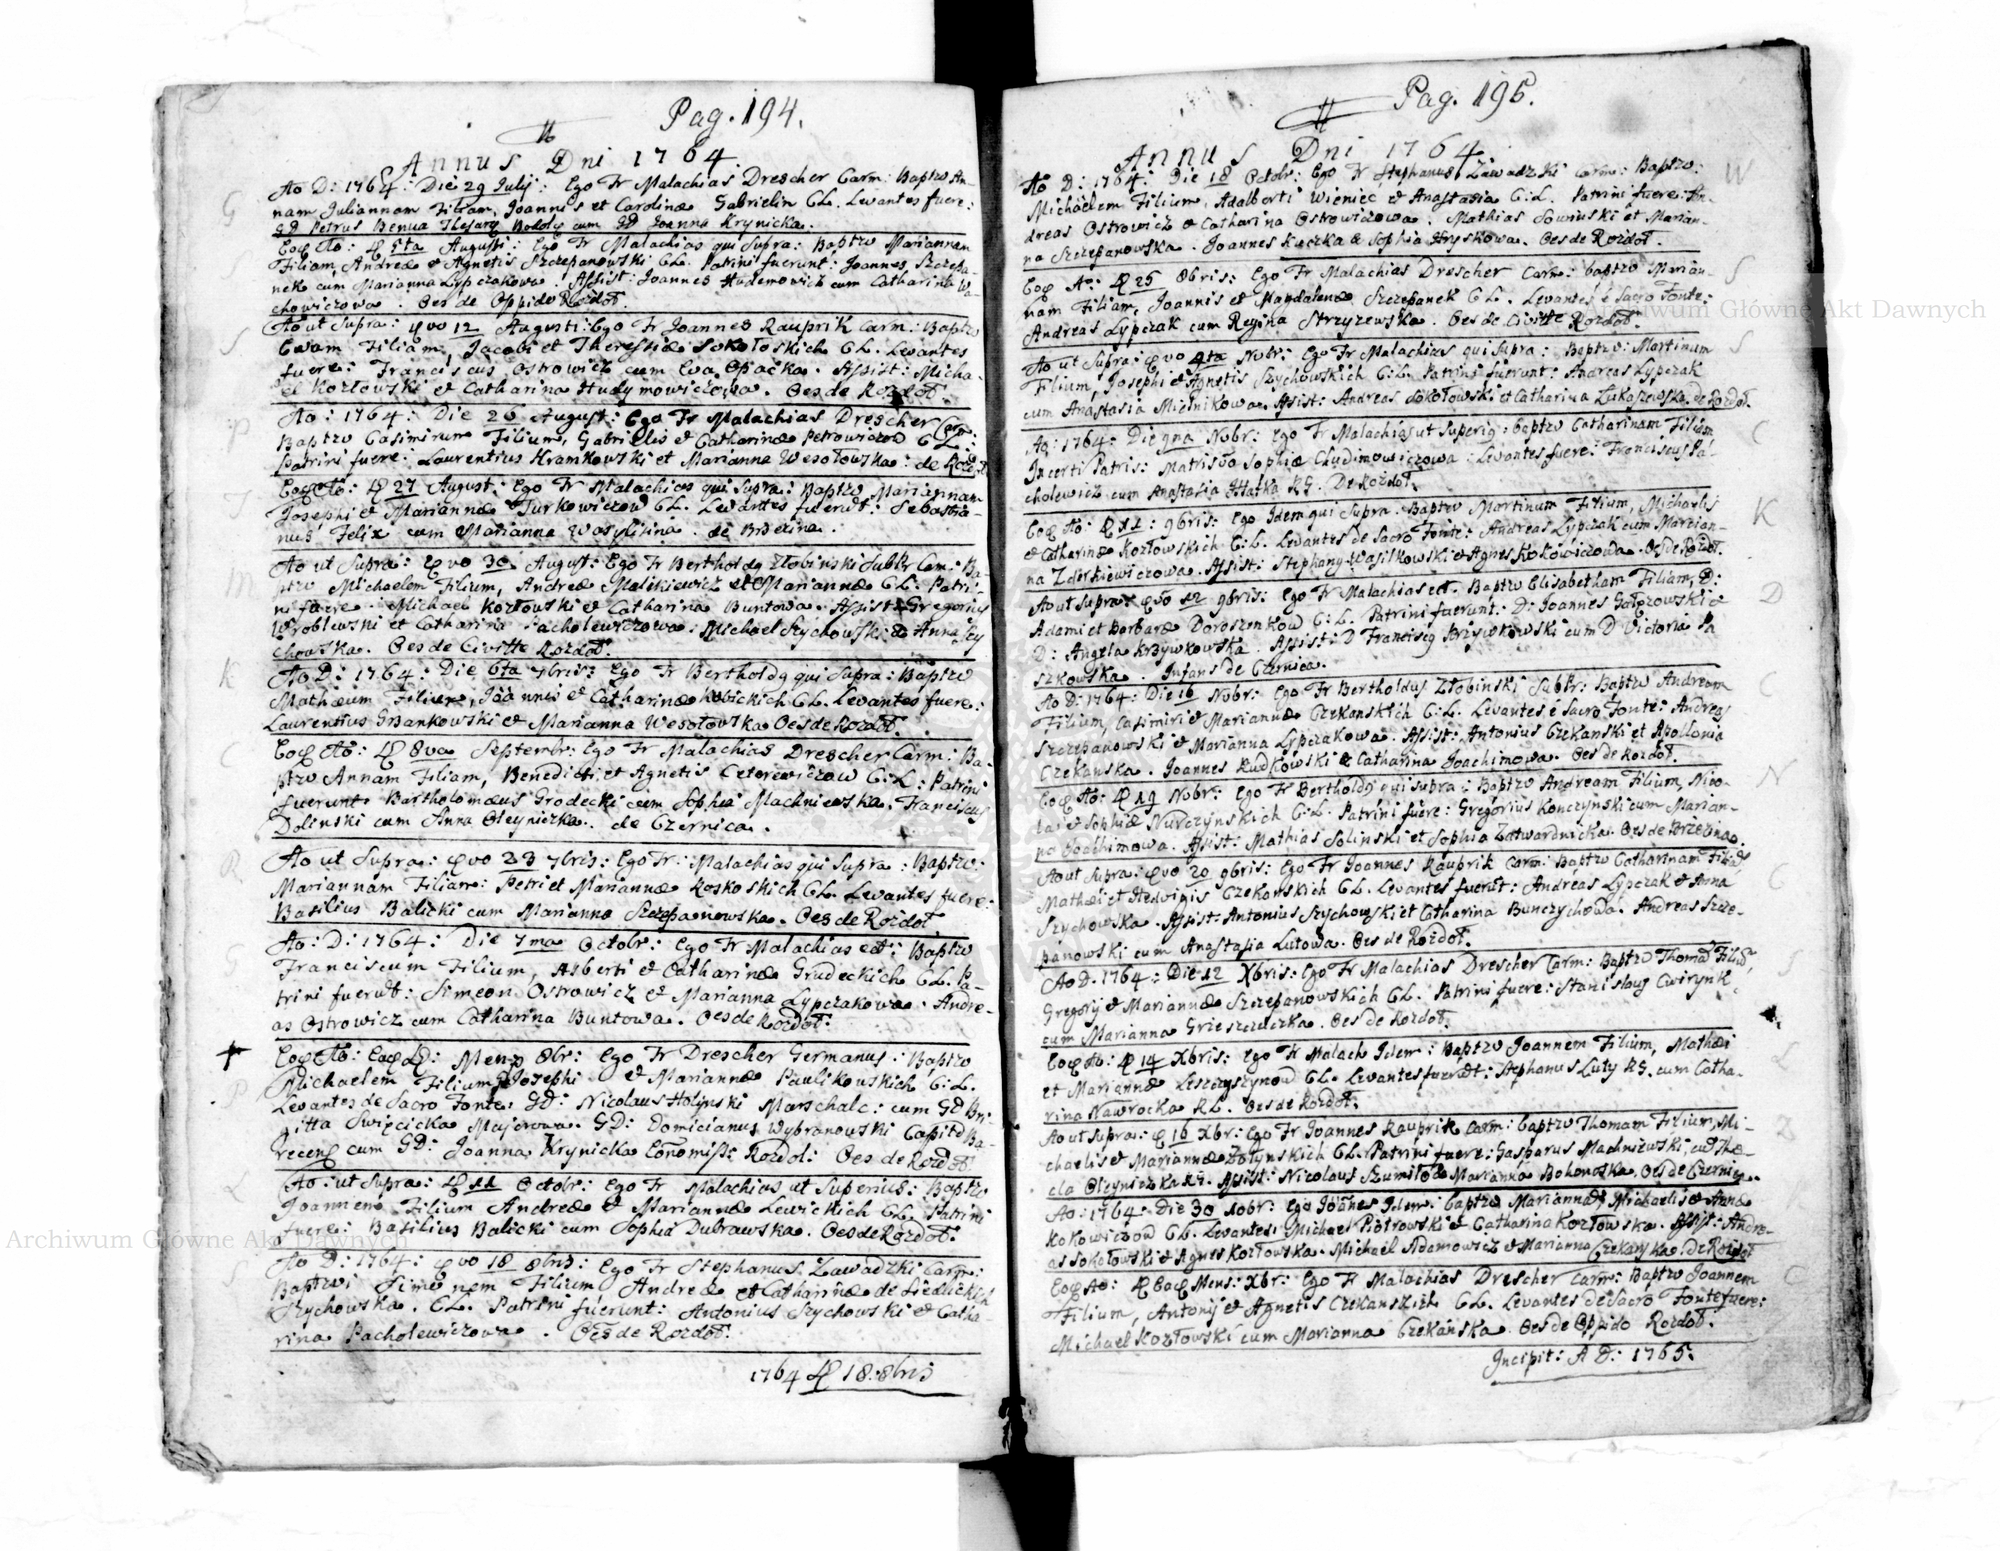 Pag. 194.
Annus Dni 1764.
G
Ao D: 1764: Die 29 Julij: Ego Fr Malachias Drescher Carm: Baptzo An-
nam Juliannam Filiam, Joannis et Carolinæ Gabrielin CL. Levantes fuere:
GD Petrus Benua cum GD Joanna Krynicka.
S
Eoq Ao: 5ta Augusti: Ego Fr Malachias qui Supra: Baptzo Mariannam
Filiam, Andreæ et Agnetis Szczepanowski CL. Patrini fuerunt: Joannes Szczepa-
nek cum Marianna Lypczakowa. Assist: Joannes Hudemowich cum Catharina Pa-
chowiczowa. Oes de Oppido Rozdoł.
S
Ao ut Supra: quo 12 Augusti: Ego Fr Joannes Rauprik Carm: Baptzo
Evam Filiam, Jacobi et Theressiæ Sokołoskich CL. Levantes
fuere: Franciscus Ostrowicz cum Eva Opaćka. Assist: Micha-
el Kozłowski et Catharina Hudymowiczowa. Oes de Rozdoł.
P
Ao: 1764: Die 26 August: Ego Fr Malachias Drescher Carm:
Baptzo Casimirum Filium, Gabrielis et Catharinæ Petrowiczow CL.
Patrini fuere: Laurentius Kramkowski et Marianna Wesołowska: de Rozdoł
T
Eoq Ao: 27 August: Ego Fr Malachias qui Supra: Baptzo Mariannam
Josephi et Mariannæ Turkowiczow CL. Levantes fuerut: Sebastia-
nus Felix cum Marianna Wasylisina. de Brzezina.
M
Ao ut Supra: quo 30 August: Ego Fr Bertholdq Złobinski SubPr Carm: Ba-
ptzo Michaelem Filium, Andreæ Malikiewicz et Mariannæ CL: Patri-
ni fuere: Michael Kozłowski et Catharina Buntowa. Assist: Gregorius
Wroblewski et Catharina Pacholewiczowa: Michael Szychowski & Anna Szy
chowska. Oes de Civitte Rozdoł.
K
Ao D: 1764: Die 6ta 7bris: Ego Fr Bertholdq qui Supra: Baptzo
Mathæum Filium, Joannis et Catharinæ Kobickich CL. Levantes fuere:
Laurentius Gramkowski et Marianna Wesołowska Oes de Rozdoł.
C
Eoq Ao: 8va Septembr: Ego Fr Malachias Drescher Carm: Ba-
ptzo Annam Filiam, Benedicti et Agnetis Cztorewiczow C:L: Patrini
fuerunt: Bartholomæus Grodecki cum Sophia Machniewska. Franciscus
Dolinski cum Anna Oleyniczka. de Czernica.
R
Ao ut Supra: quo 23 7bris: Ego Fr: Malachias qui Supra: Baptzo:
Mariannam Filiam: Petri et Mariannæ Roskoskich CL. Levantes fuere:
Basilius Balicki cum Marianna Szczepanowska. Oes de Rozdoł.
G
Ao: D: 1764: Die 7ma Octobr: Ego Fr Malachias ect: Baptzo
Franciscum Filium, Alberti et Catharinæ Grudeckich CL. Pa-
trini fuerut: Simeon Ostrowicz et Marianna Lypczakowa. Andre-
as Ostrowicz cum Catharina Buntowa. Oes de Rozdoł.
P
Eoq Ao: Eoq D: Mensq 8br: Ego Fr Drescher Germanus: Baptzo
Michaelem Filium, Josephi et Mariannæ Paulikowskich C:L.
Levantes de Sacro Fonte: GD: Nicolaus Holynski Marschalc: cum GD Bri-
gitta Swięcicka Majorowa. GD: Domicianus Wybranowski
cum GD: Joanna Krynicka Rozdol: Oes de Rozdoł
L
Ao: ut Supra: 11 Octobr: Ego Fr Malachias ut Superius: Baptzo
Joannem Filium Andreæ et Mariannæ Lewickich CL. Patrini
fuere: Basilius Balicki cum Sophia Dubrawska. Oes de Rozdoł.
S
Ao D: 1764: quo 18 8bris: Ego Fr Stephanus Zawadzki Carm:
Baptzo: Simeonem Filium Andreæ et Catharinæ de Siedlickich
Szychowska. CL. Patrini fuerunt: Antonius Szychowski et Catha-
rina Pacholewiczowa. Oes de Rozdoł.
1764 18. 8bris
Pag. 195.
Annus Dni 1764
W
Ao D: 1764: Die 18 Octobr: Ego Fr Stephanus Zawadzki Carm: Baptzo:
Michaelem Filium, Adalberti Wieniec et Anastasia C:L. Patrini fuere: An-
dreas Ostrowicz & Catharina Ostrowiczowa. Mathias Sowinski et Marian-
na Szczepanowska. Joannes Kaczka & Sophia Hryskowa. Oes de Rozdoł.
S
Eoq Ao: 25 8bris: Ego Fr Malachias Drescher Carm: baptzo Marian-
nam Filiam, Joannis et Magdalenæ Szczepanek CL. Levantes e Sacro Fonte:
Andreas Lypczak cum Regina Strzyzewska. Oes de Civitte Rozdoł.
S
Ao ut Supra: quo 4ta Nobr: Ego Fr Malachias qui Supra: Baptzo: Martinum
Filium, Josephi et Agnetis Szychowskich C:L. Patrini fuerunt: Andreas Lypczak
cum Anastasia Mielnikowa. Assist: Andreas Sokołowski et Catharina Lukaszewska. de Rozdoł.
C
Ao: 1764: Die 9na Nobr: Ego Fr Malachias ut Superiq: baptzo Catharinam Filiam
Incerti Patris: Matris vo Sophiæ Chudimowiczowa: Levantes fuere: Franciscus Pa-
cholewicz cum Anastasia Hałka RG. De Rozdoł.
K
Eoq Ao: 11: 9bris: Ego Idem qui Supra. Baptzo Martinum Filium, Michaelis
et Catharinæ Kozłowskich C:L. Levantes de Sacro Fonte: Andreas Lypczak cum Marian-
na Zdorkiewiczowa. Assist: Stephanq Wasilkowski et Agnes Kokowiczowa. Oes de Rozdoł.
D
Ao ut Supra: quo 12 9bris: Ego Fr Malachias ect. Baptzo Elisabetham Filiam, D:
Adami et Barbaræ Doroszenkow C:L. Patrini fuerunt: D: Joannes Gołczowski et
D: Angela Krzywkowska. Assist: D Franciscq Krzywkowski cum D Victoria Pa
szkowska. Infans de Czernica.
C
Ao D: 1764: Die 16 Nobr: Ego Fr Bertholdus Złobinski SubPr: Baptzo Andream
Filium, Casimiri et Mariannæ Czekanskich C:L. Levantes e Sacro Fonte: Andreas
Szczepanowski et Marianna Lypczakowa. Assist: Antonius Czekanski et Apollonia
Czekanska. Joannes Rudkowski & Catharina Joachimowa. Oes de Rozdoł.
N
Eoq Ao: 19 Nobr: Ego Fr Bertholdq qui supra: Baptzo Andream Filium, Nico-
lai et Sophiæ Nurczynskich C:L. Patrini fuere: Gregorius Konczynski cum Marian-
na Joachimowa. Assist: Mathias Solinski et Sophia Zatwardnicka. Oes de Brzezina.
C
Ao ut Supra: quo 20 9bris: Ego Fr Joannes Rauprik Carm: Baptzo Catharinam Filiam
Mathæi et Hedwigis Czekanskich CL. Levantes fuerut: Andreas Lypczak et Anna
Szychowska. Assist: Antonius Szychowski et Catharina Bunczychowa. Andreas Szcze-
panowski cum Anastasia Lutowa. Oes de Rozdoł.
S
Ao D. 1764: Die 12 Xbris: Ego Fr Malachias Drescher Carm: Baptzo Thoma Filiu,
Gregorij et Mariannæ Szczepanowskich CL. Patrini fuere: Stanislaus Cwirynk
cum Marianna Grzeszczuczka. Oes de Rozdoł.
L
Eoq Ao: 14 Xbris: Ego Fr Malach Idem: Baptzo Joannem Filium, Mathæi
et Mariannæ Leszczyszynow CL. Levantes fuerut: Stephanus Luty RG. cum Catha-
rina Nawrocka RL. Oes de Rozdoł.
Z
Ao ut Supra: 16 Xbr: Ego Fr Joannes Rauprik Carm: baptzo Thomam Filium, Mi-
chaelis et Mariannæ Zołynskich CL. Patrini fuere: Gasparus Machniewski, cu The-
cla Oleyniczka RG. Assist: Nicolaus Szumiło & Marianna Bohonoska. Oes de Czernica.
Ao: 1764: Die 30 Xobr: Ego Joanes Idem: baptzo Marianna, Michaelis & Annæ
Kokowiczow CL. Levantes: Michael Piotrowski et Catharina Kozłowska. Assist: Andre-
as Sokołowski et Agnes Kozłowska. Michael Adamowicz et Marianna Czekanska. de Rozdoł
C
Eoq Ao: Eoq Mens: Xbr: Ego Fr Malachias Drescher Carm: Baptzo Joannem
Filium, Antonij et Agnetis Czekanskich CL. Levantes de Sacro Fonte fuere:
Michael Kozłowski cum Marianna Czekanska. Oes de Oppido Rozdoł.
Incipit: A D: 1765:
Archiwum Główne Akt Dawnych
Archiwum Główne Akt Dawnych